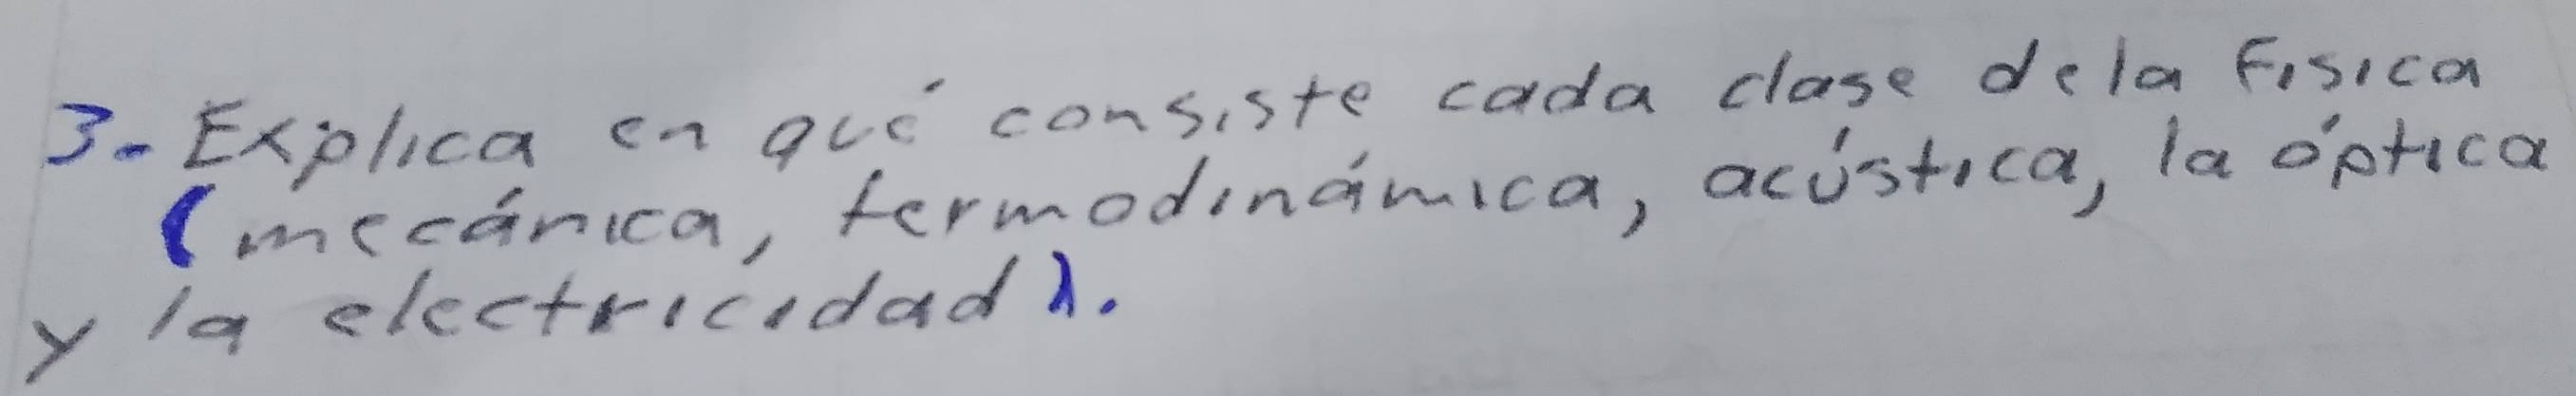 3.- Explica en qué consiste cada clase de la Física
(mecánica, termodinámica, acústica, la óptica
y la electricidad).